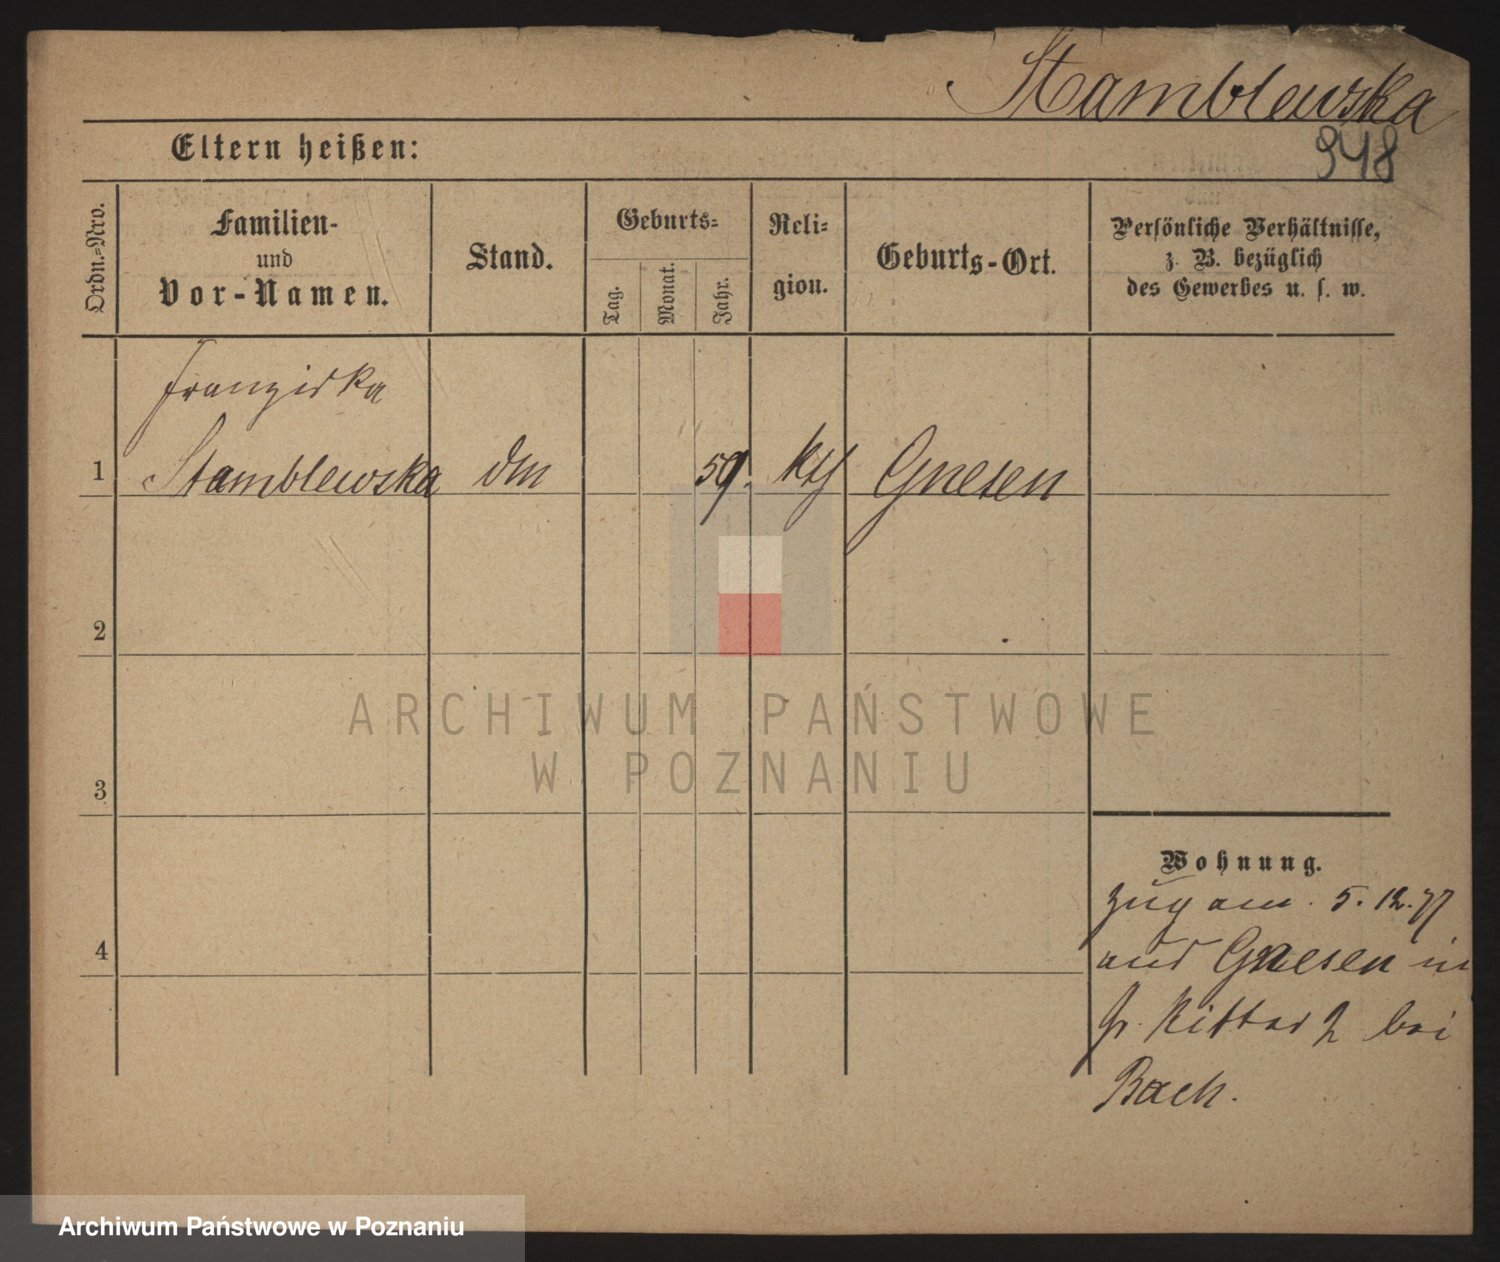 Stamblewska
948
Eltern heißen:
Ordn.-Nro.
Familien-
und
Vor-Namen.
Stand.
Geburts-
Tag.
Monat.
Jahr.
Reli-
gion.
Geburts-Ort.
Persönliche Verhältnisse,
z. B. bezüglich
des Gewerbes u. s. w.
Franziska
1 Stamblewska 59. kth Gnesen
2
3
4
Wohnung.
Zug am 5.12.77
aus Gnesen in
Gr. Ritter 2 bei
Bach.
ARCHIWUM PAŃSTWOWE
W POZNANIU
Archiwum Państwowe w Poznaniu